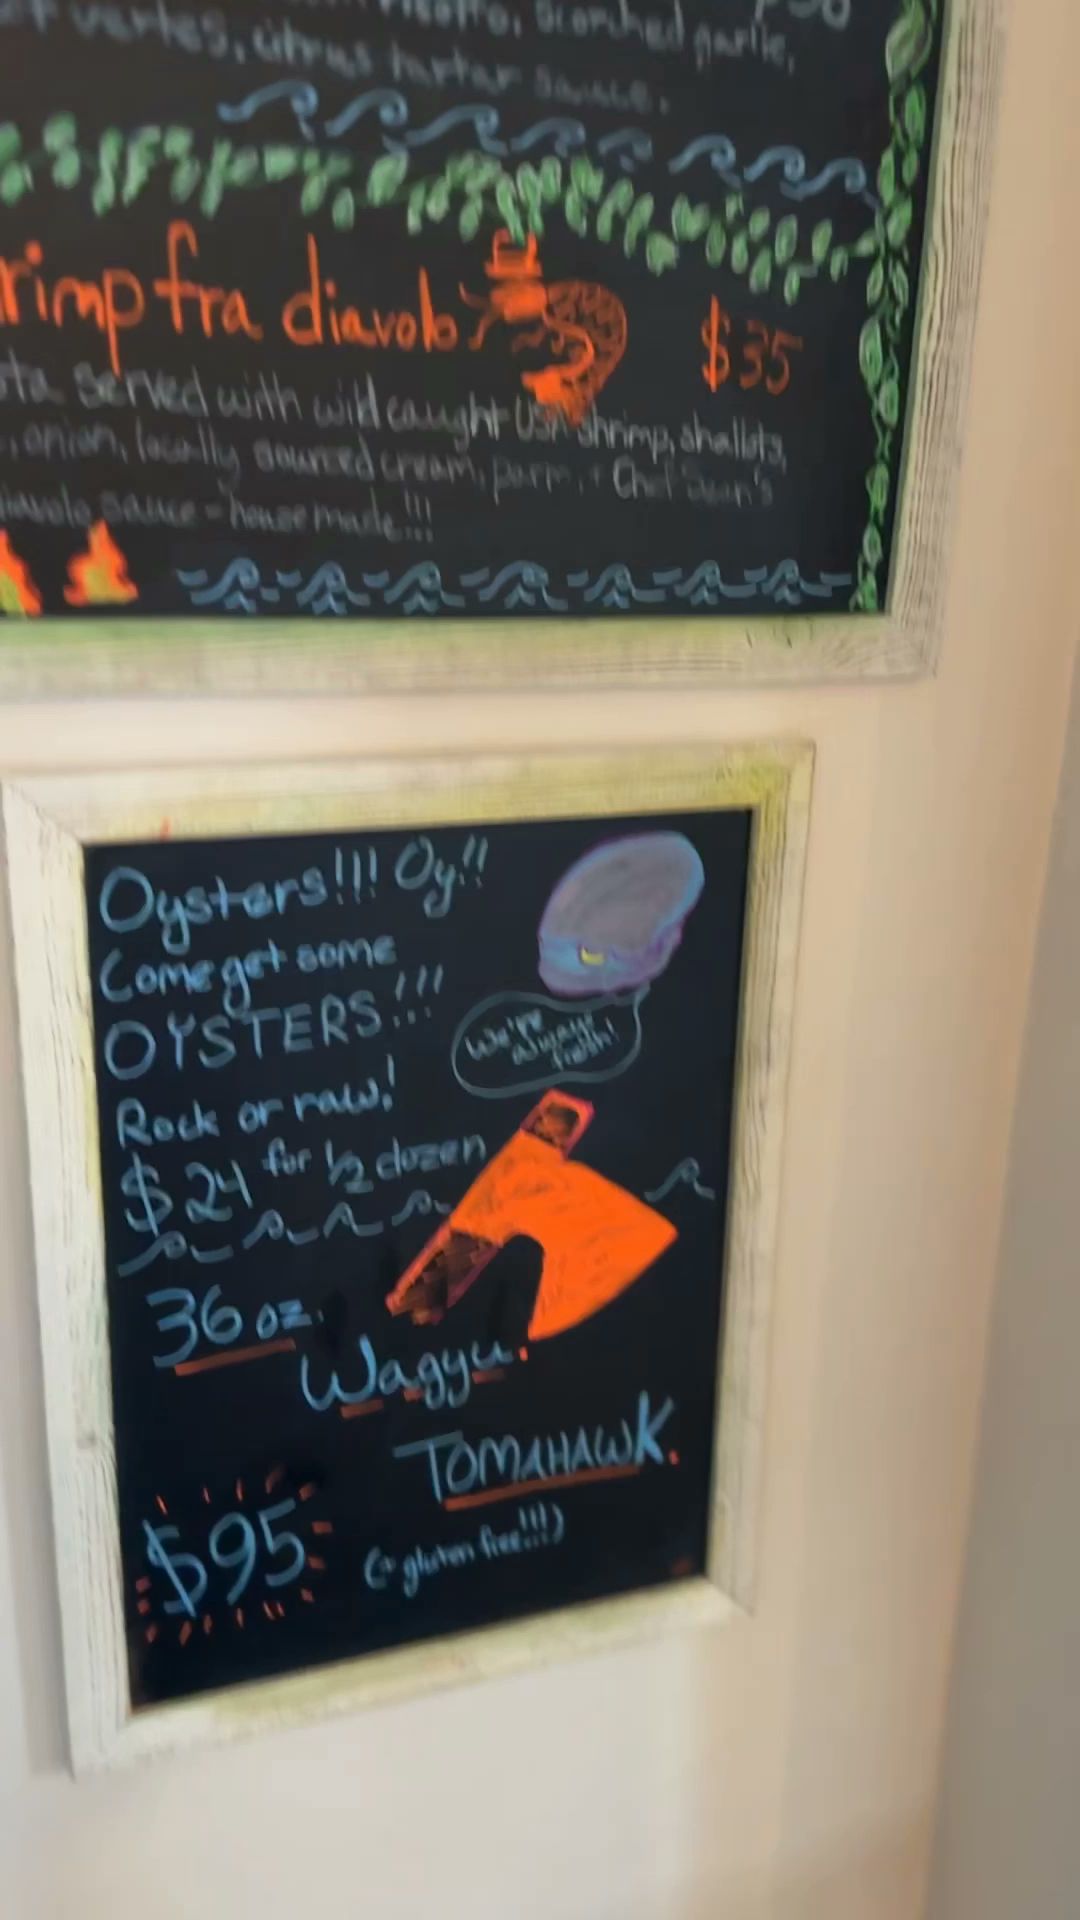 Scorched garlic,
vertes, citrus tartar sauce.
rimp fra diavolo $35
served with wild caught USA shrimp, shallots,
onion, locally sourced cream, parm, + Chef Sean's
diavolo sauce - housemade!!!
Oysters!!! Oy!!
Come get some
OYSTERS!!!
We're
always
fresh!
Rock or raw!
$24 for 1/2 dozen
36 oz.
Wagyu.
TOMAHAWK.
$95
gluten free!!!)